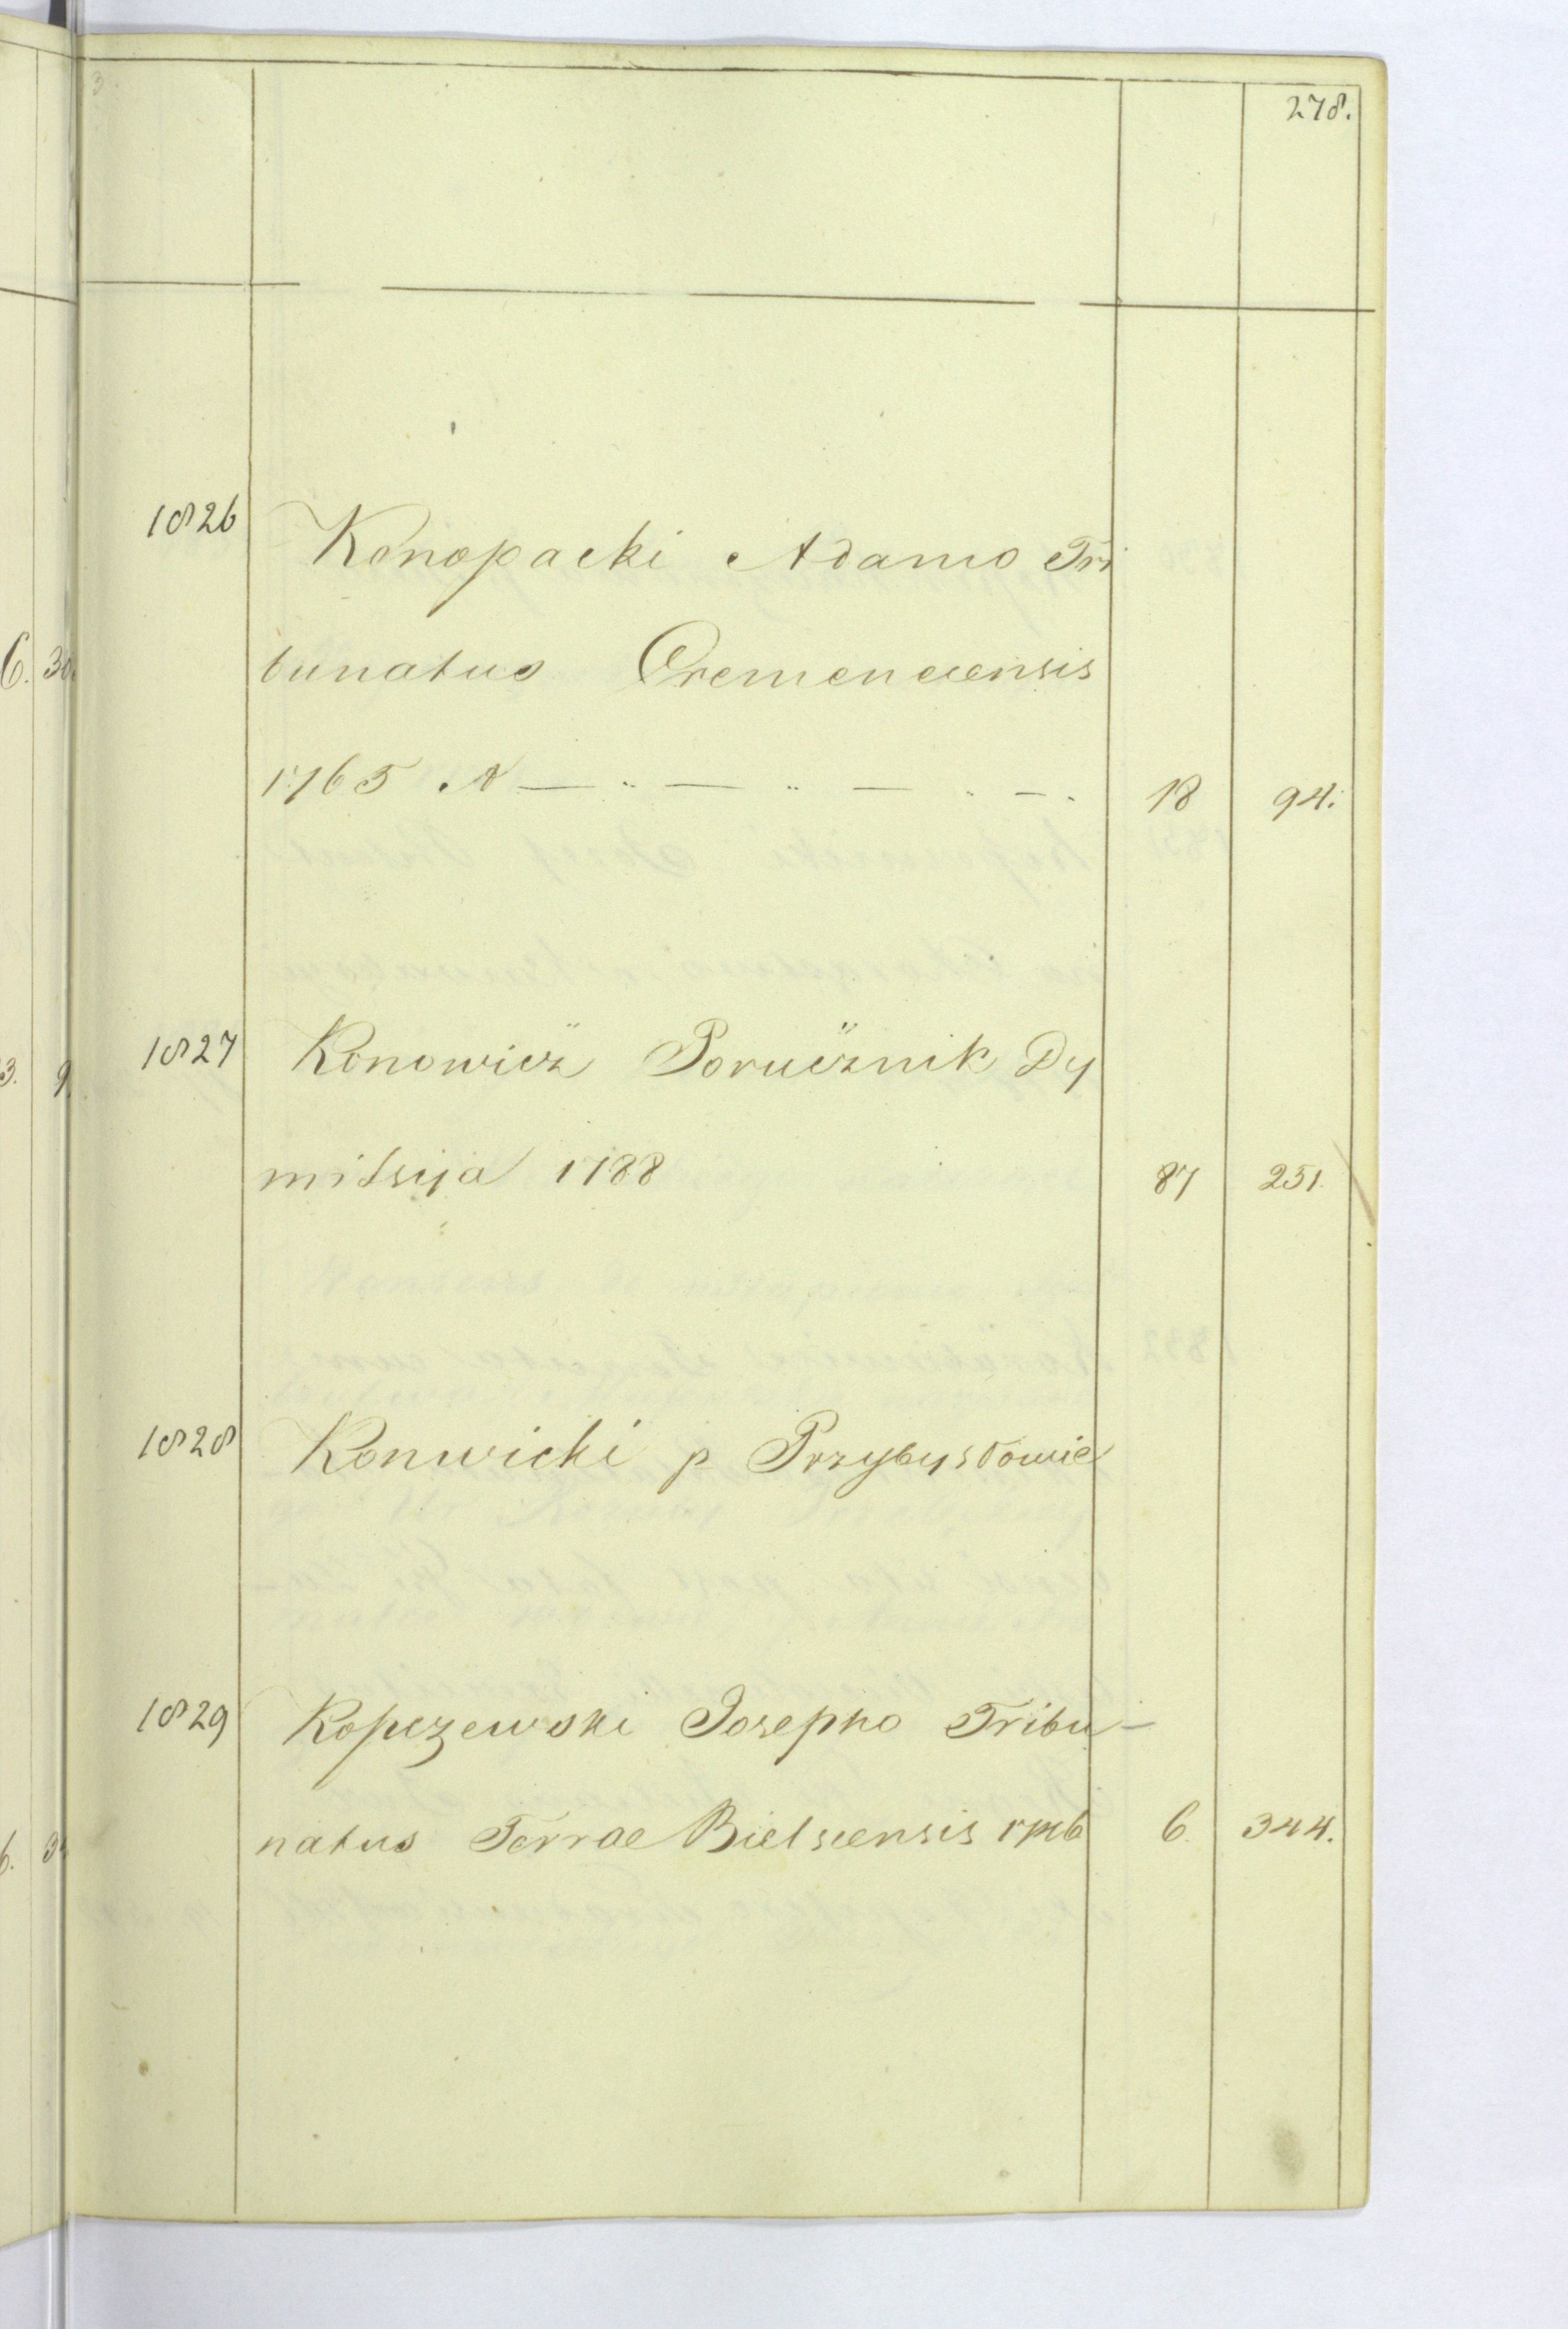 278.
1826 Konopacki Adamo Tri
bunatus Cremenecensis
1765 N — „ — „ — „ — „ 18 94.
1827 Konowicz Porucznik Dy
missyja 1788 87 251.
1828 Konwicki p Przybysławie
1829 Kopczewski Josepho Tribu–
natus Terrae Bielscensis 6. 344.